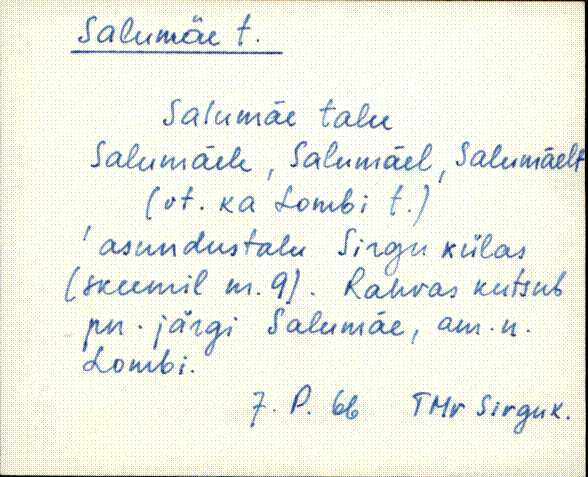 Salumäe t.
Salumäe talu
Salumäele, Salumäel, Salumäelt
(vt. ka Lombi t.)
'asundustalu Sirgu külas
(skeemil nr. 9). Rahvas kutsub
pn. järgi Salumäe, am. n.
Lombi.
7. P. 66 TMr Sirgu k.